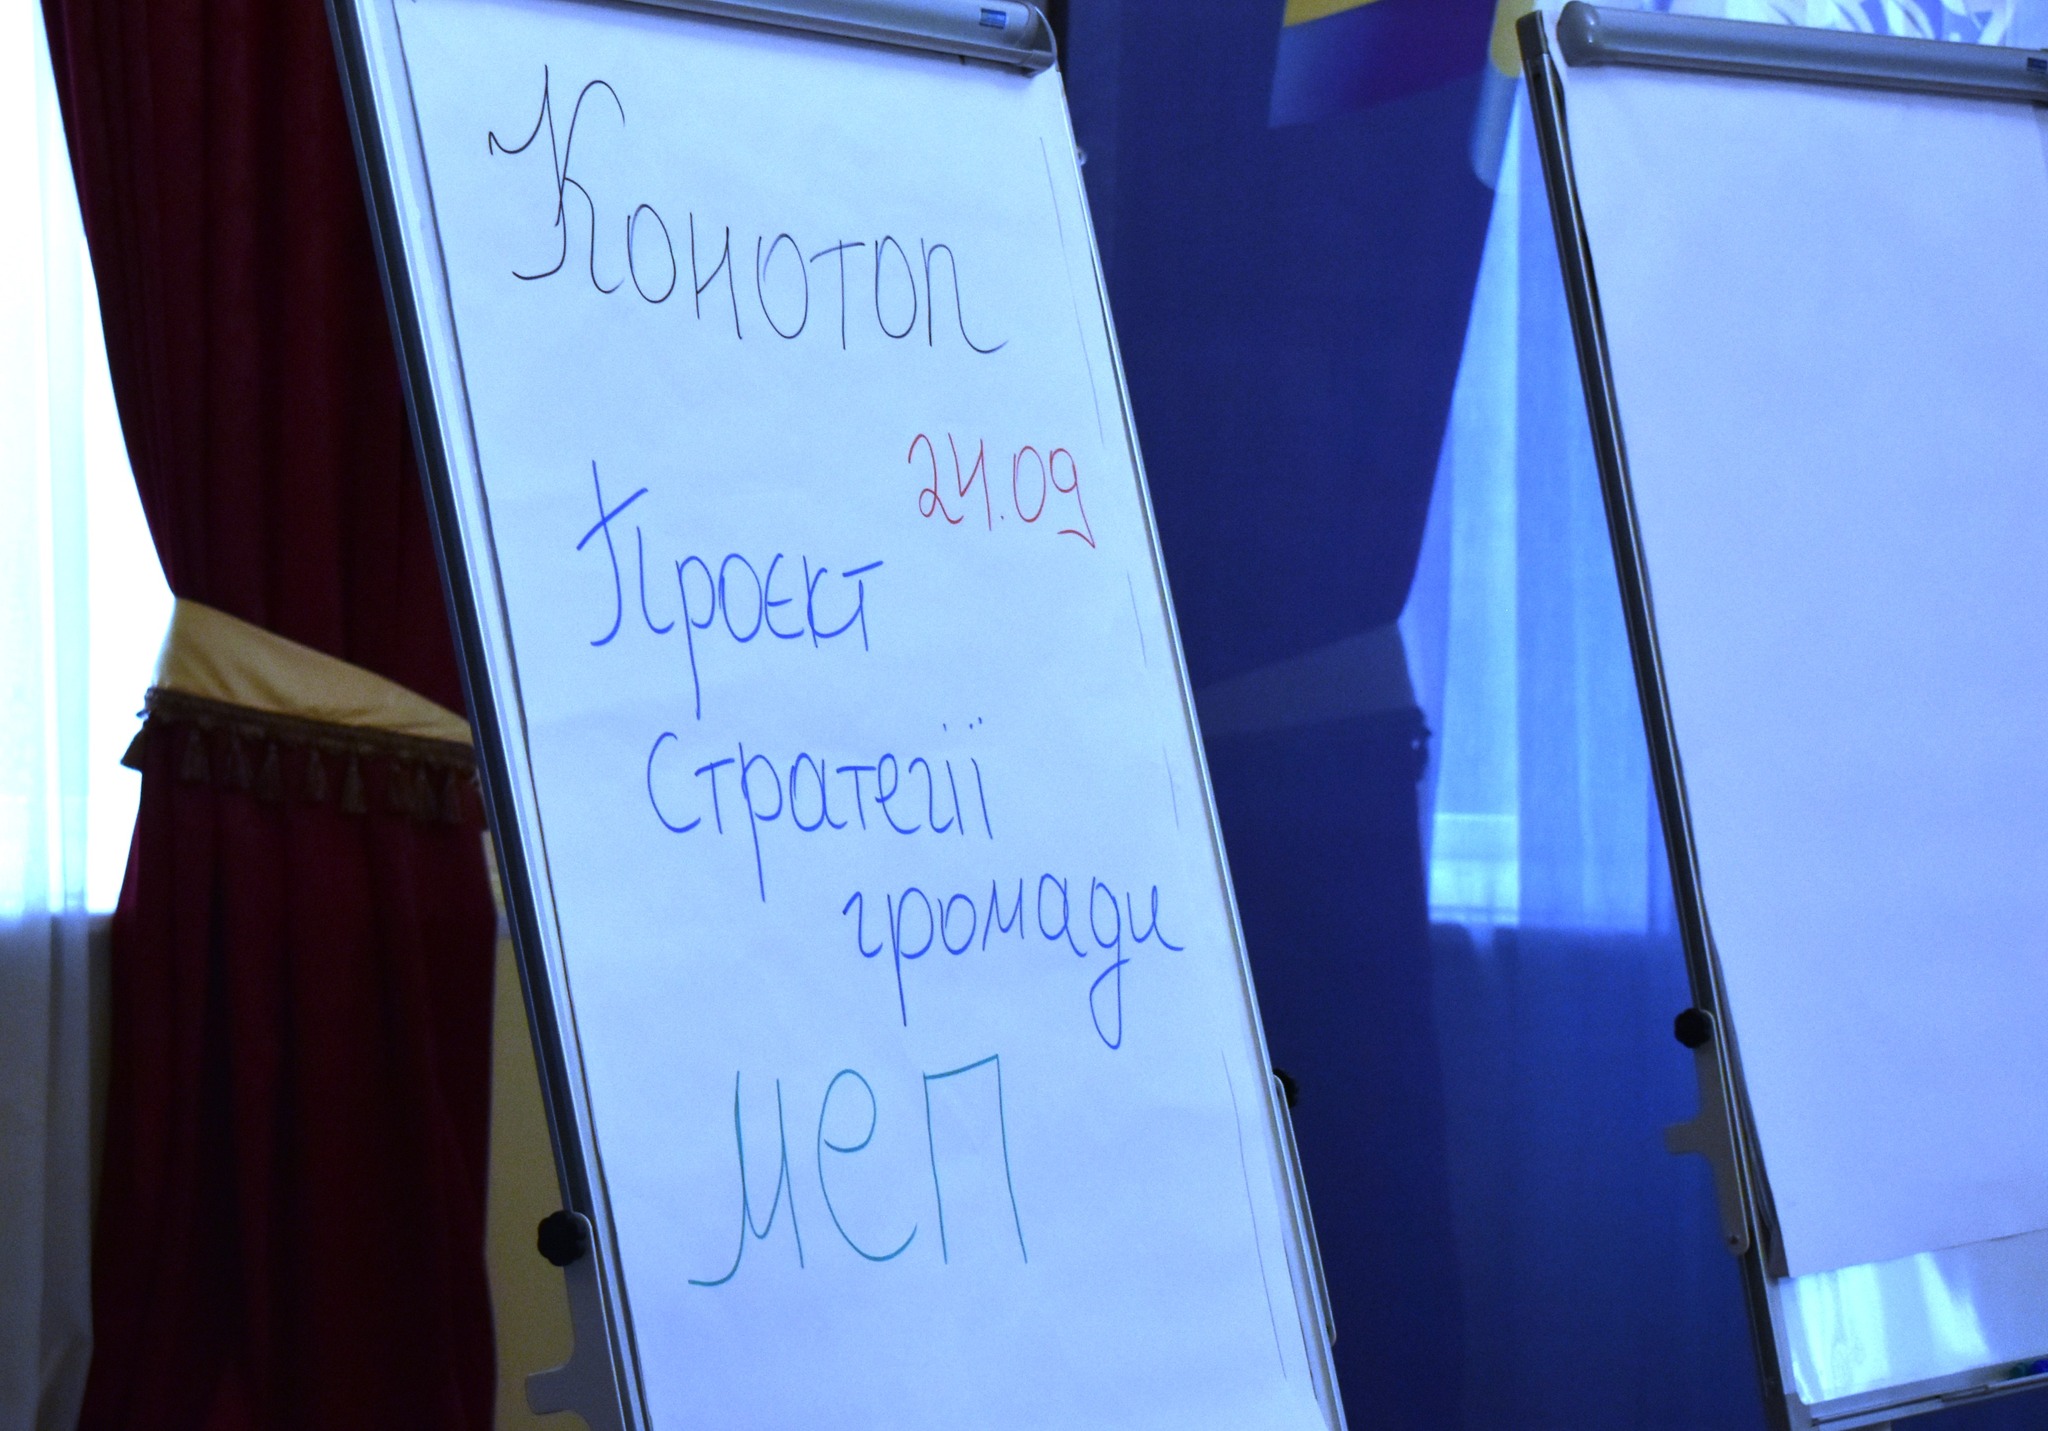 Конотоп
24.09
Проєкт
Стратегії
громади
МЕП